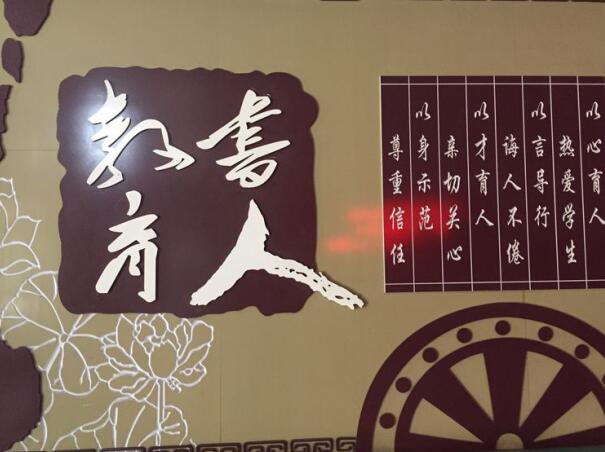 教书
育人
以心育人
热爱学生
以言导行
诲人不倦
以才育人
亲切关心
以身示范
尊重信任